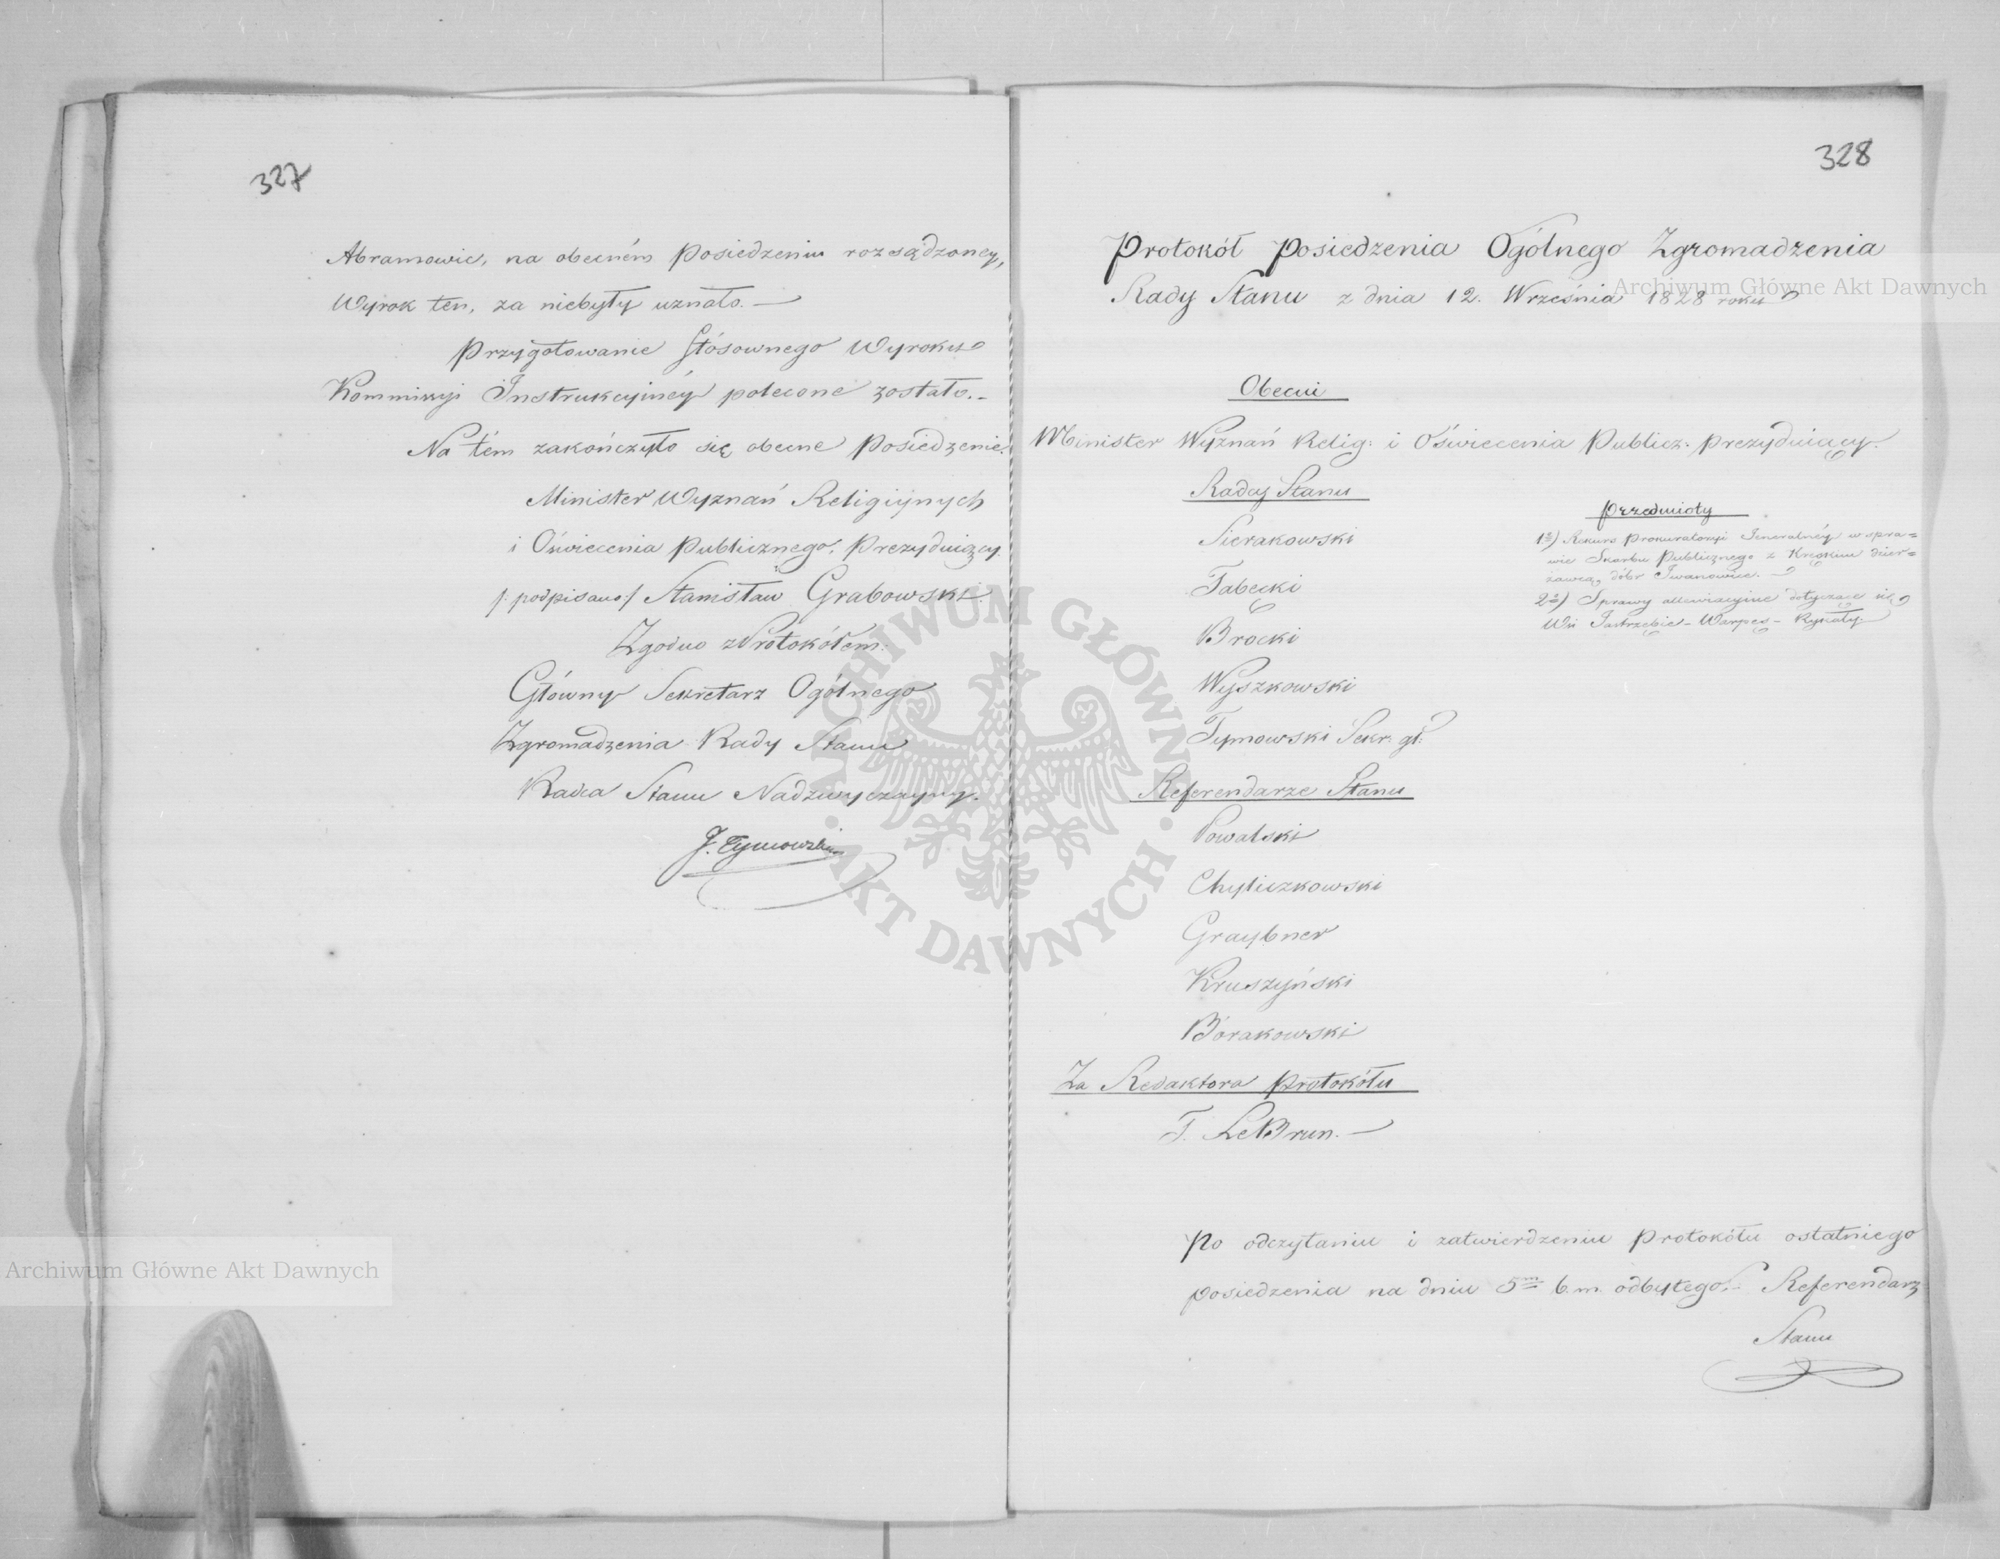 327
Abramowic, na obecném Posiedzeniu rozsądzoney,
Wyrok ten, za niebyły uznało.—
Przygotowanie stósownego Wyroku
Kommissyi Instrukcyinéy polecone zostało.—
Na tém zakończyło się obecne Posiedzenie.
Minister Wyznań Religijnych
i Oświecenia Publicznego, Prezydujący.
/:podpisano:/ Stanisław Grabowski.
Zgodno z Protokółem.
Główny Sekretarz Ogólnego
Zgromadzenia Rady Stanu
Radca Stanu Nadzwyczayny.
J. Tymowski
328
Protokół Posiedzenia Ogólnego Zgromadzenia
Rady Stanu z dnia 12. Września 1828 roku
Obecni
Minister Wyznań Relig: i Oświecenia Publicz: prezyduiący.
Radcy Stanu
Sierakowski
Tabęcki
Brocki
Wyszkowski
Tymowski Sekr: gł:
Referendarze Stanu
Powalski
Chyliczkowski
Graybner
Kruszyński
Borakowski
Za Redaktora Protokółu
F. LeBrun.—
Przedmioty
1o) Rekurs Prokuratoryi Jeneralnéy w spra=
wie Skarbu Publicznego z dzier=
żawcą dóbr Iwanowice.—
2o) Sprawy allewiacyine dotyczące się
Wsi Jastrzębie – Warpęs – Rykały.
Po odczytaniu i zatwierdzeniu Protokółu ostatniego
posiedzenia na dniu 5m b. m. odbytego.– Referendarz
Stanu
Archiwum Główne Akt Dawnych
Archiwum Główne Akt Dawnych
ARCHIWUM GŁÓWNE · AKT DAWNYCH ·